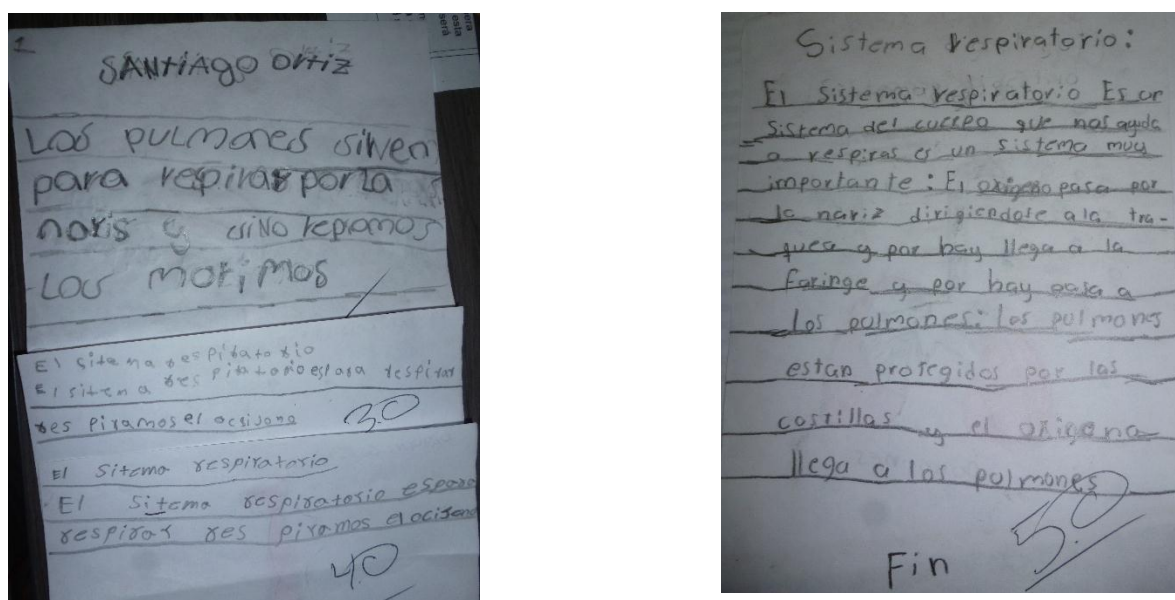 1
SANtiAgo Ortiz
Los pulmones silven
para repirar por la
naris y sino repramos
Los morimos
El sitema respiratorio
El sitema respiratorio es para respirar
res piramos el ocsijono
3.0
El Sitema respiratorio
El Sitema respiratorio espara
respirar res piramos el ocijeno
4.0
Sistema respiratorio:
El sistema respiratorio Es un
sistema del cuerpo que nos ayuda
a respirar es un sistema muy
importante: El oxigeno pasa por
la nariz dirigiendose ala tra-
quea y por hay llega a la
faringe y por hay pasa a
los pulmones: los pulmones
estan protegidos por las
costillas y el oxigeno
llega a los pulmones
5.0
Fin